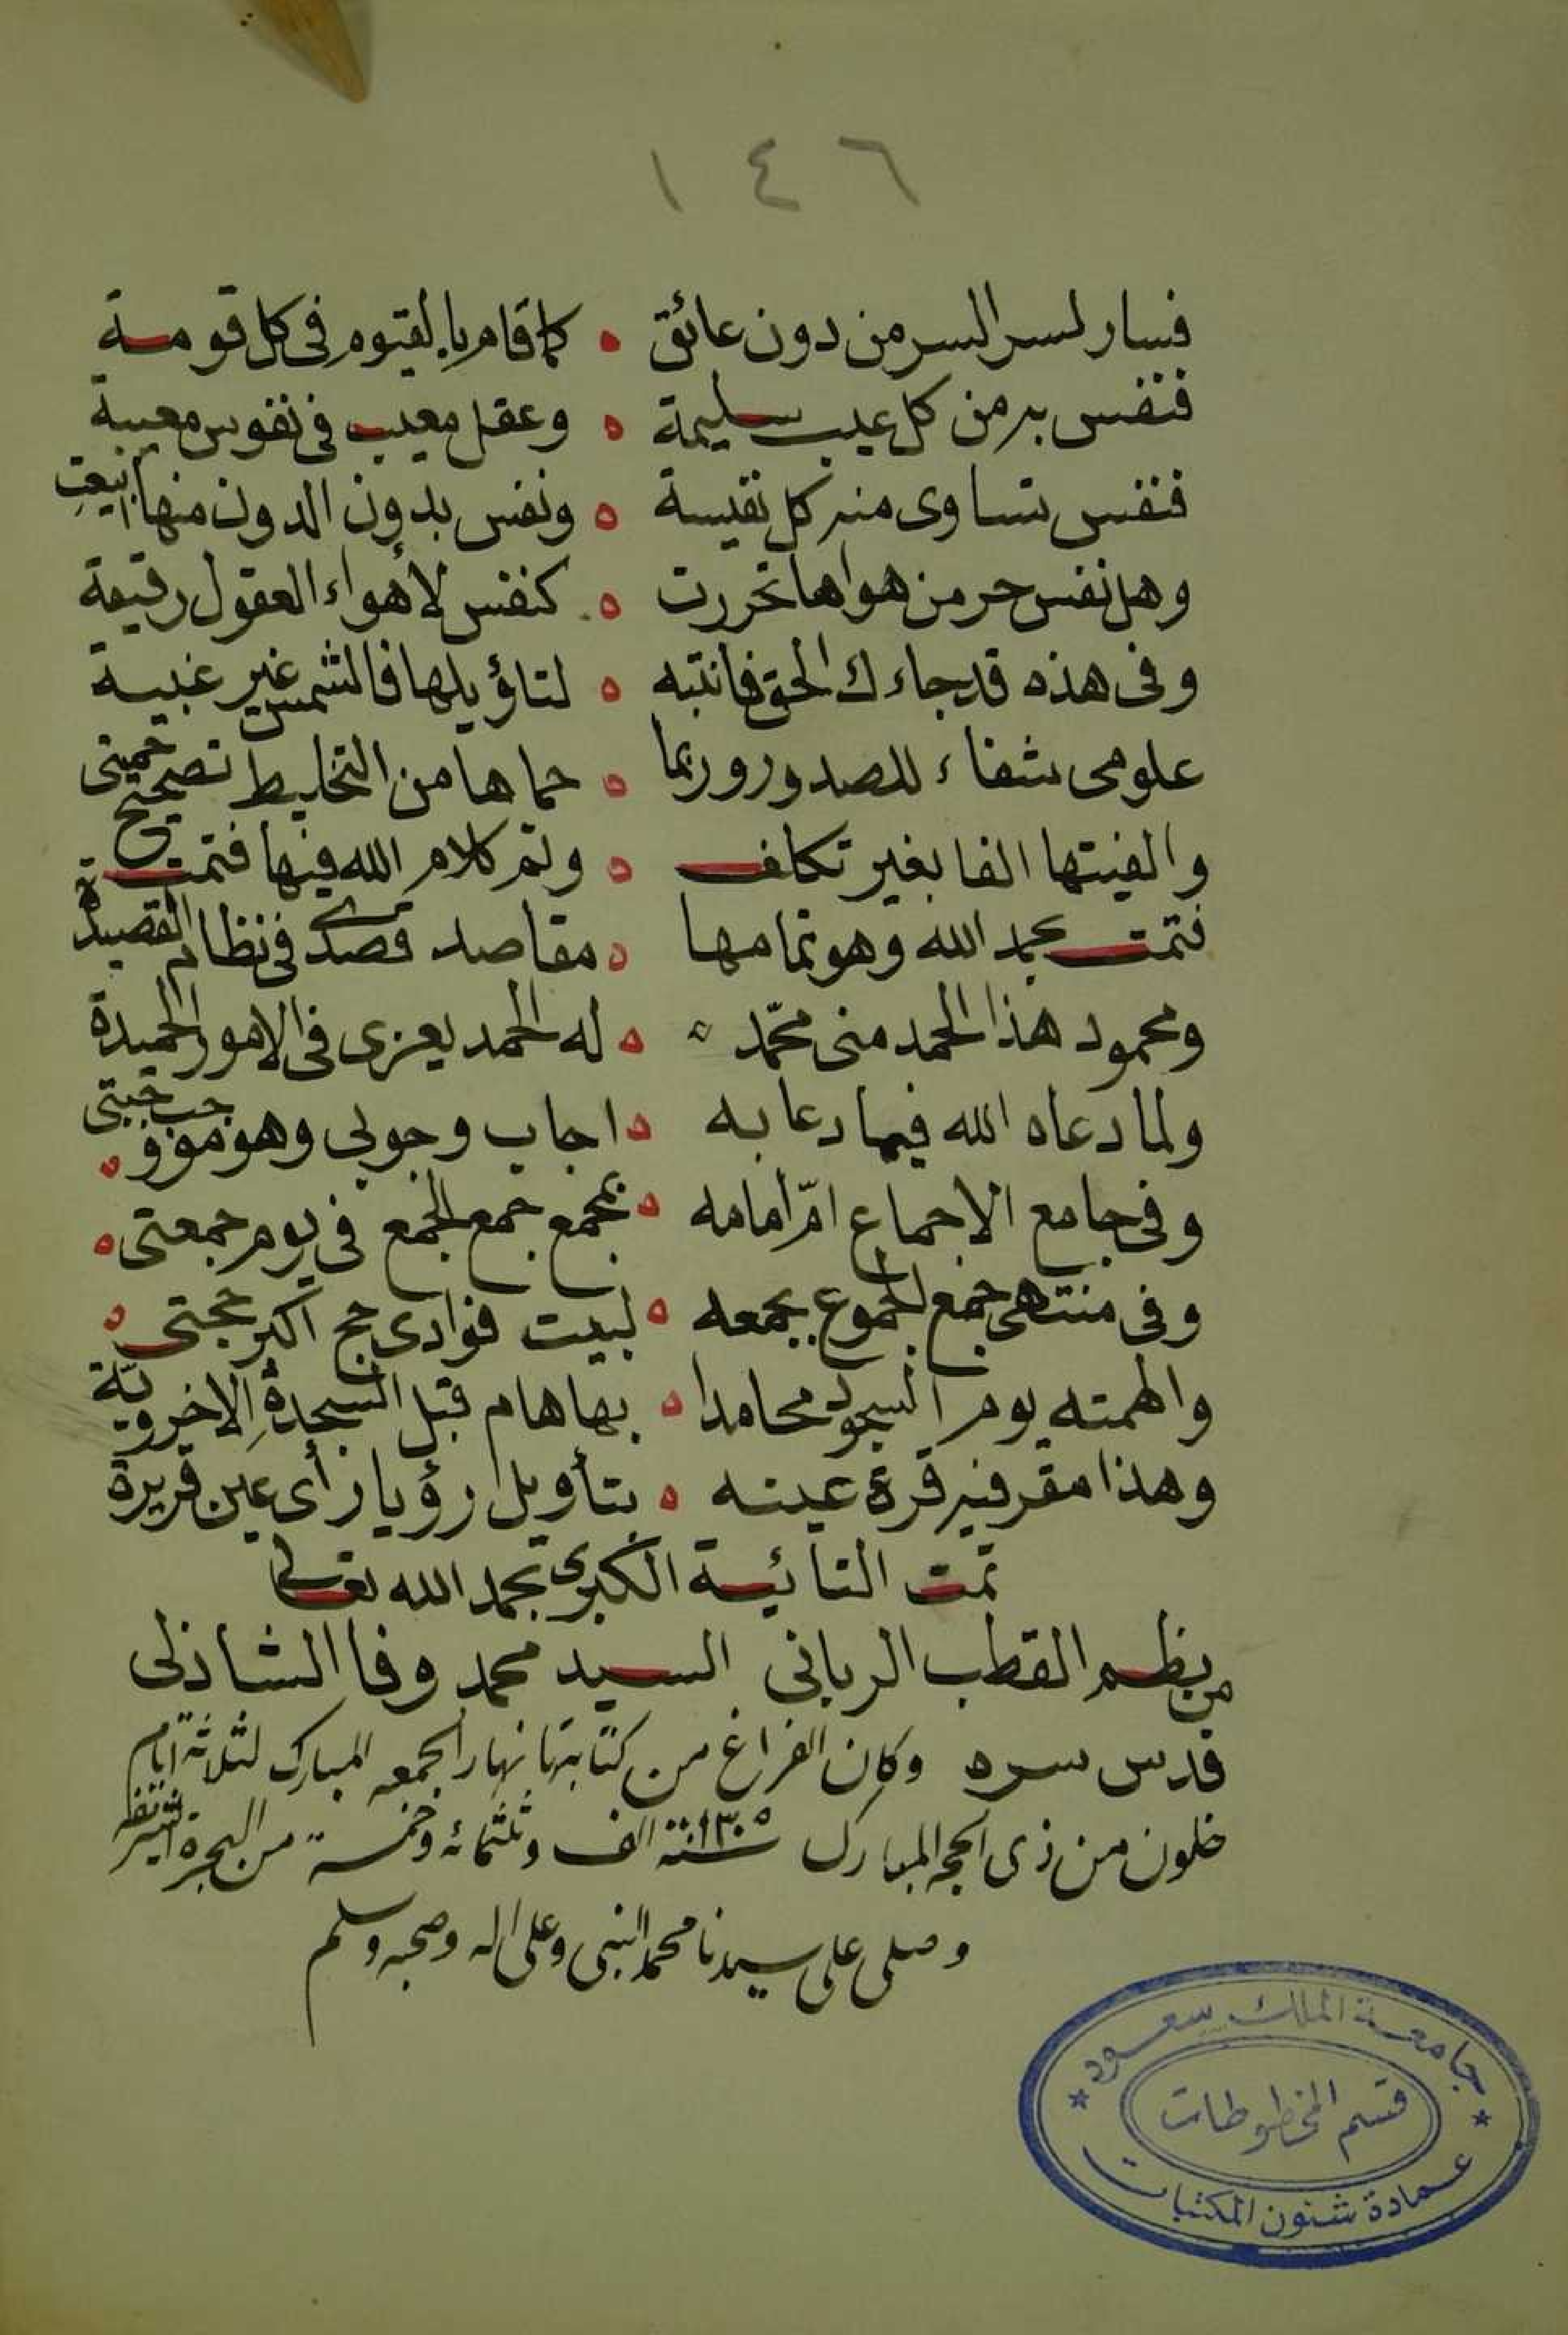 ١٤٦
فسار لسر السر من دون عائق ٥ كما قام بالقيوم في كل قومة
فنفس به من كل عيب سليمة ٥ وعقل معيب في نفوس معيبة
فنفس تساوى منه كل نفيسة ٥ ونفس بدون الدون منها ابيعت
وهل نفس حر من هواها تحررت ٥ كنفس لأهواء العقول رقيقة
وفى هذه قد جاءك الحق فانتبه ٥ لتاؤيلها فالشمس غير غبية
علومى شفاء للصدور وربما ٥ حماها من التخليط تصحيح حميتى
والفيتها الفا بغير تكلف ٥ وتم كلام الله فيها فتمت
فتمت بحمد الله وهو تمامها ٥ مقاصد قصدى فى نظام القصيدة
ومحمود هذا الحمد منى محمّد ٥ له الحمد يعزى فى الامور الحميدة
ولما دعاه الله فيما دعا به ٥ اجاب وجوبى وهو موجب حبتى ٥
وفى جامع الاجماع امّ امامه ٥ بجمع جمع الجمع فى يوم جمعتى ٥
وفى منتهى جمع الجموع بجمعه ٥ لبيت فوادى حج اكبر حجتى ٥
والهمته يوم السجود محامدا ٥ بها هام قبل السجدة الاخرويّة
وهذا مقر فيه قرة عينه ٥ بتأويل رؤيا رأى عين قريرة
تمت التائية الكبرى بحمد الله تعالى
من نظم القطب الربانى السيد محمد وفا الشاذلى
قدس سره وكان الفراغ من كتابتها نهار الجمعه المبارك لثلاثة ايام
خلون من ذى الحجه المبارك سنة ١٣٠٥ الف وثلثمائه وخمسة من الهجرة
وصلى على سيدنا محمد النبى وعلى اله وصحبه وسلم
جامعة الملك سعود
قسم المخطوطات
عمادة شئون المكتبات